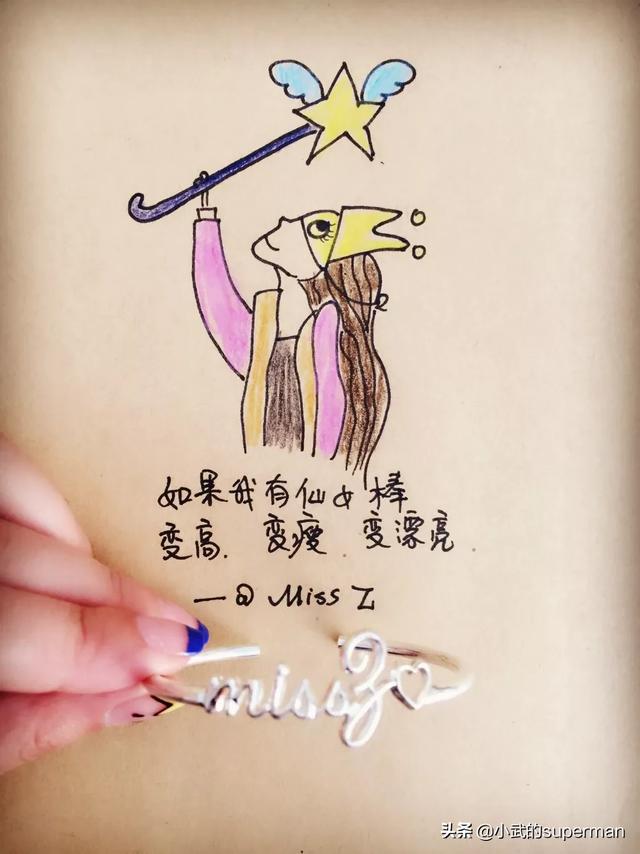 如果我有仙女棒
变高. 变瘦. 变漂亮
—@ Miss Z
missZ♡
头条 @小武的superman